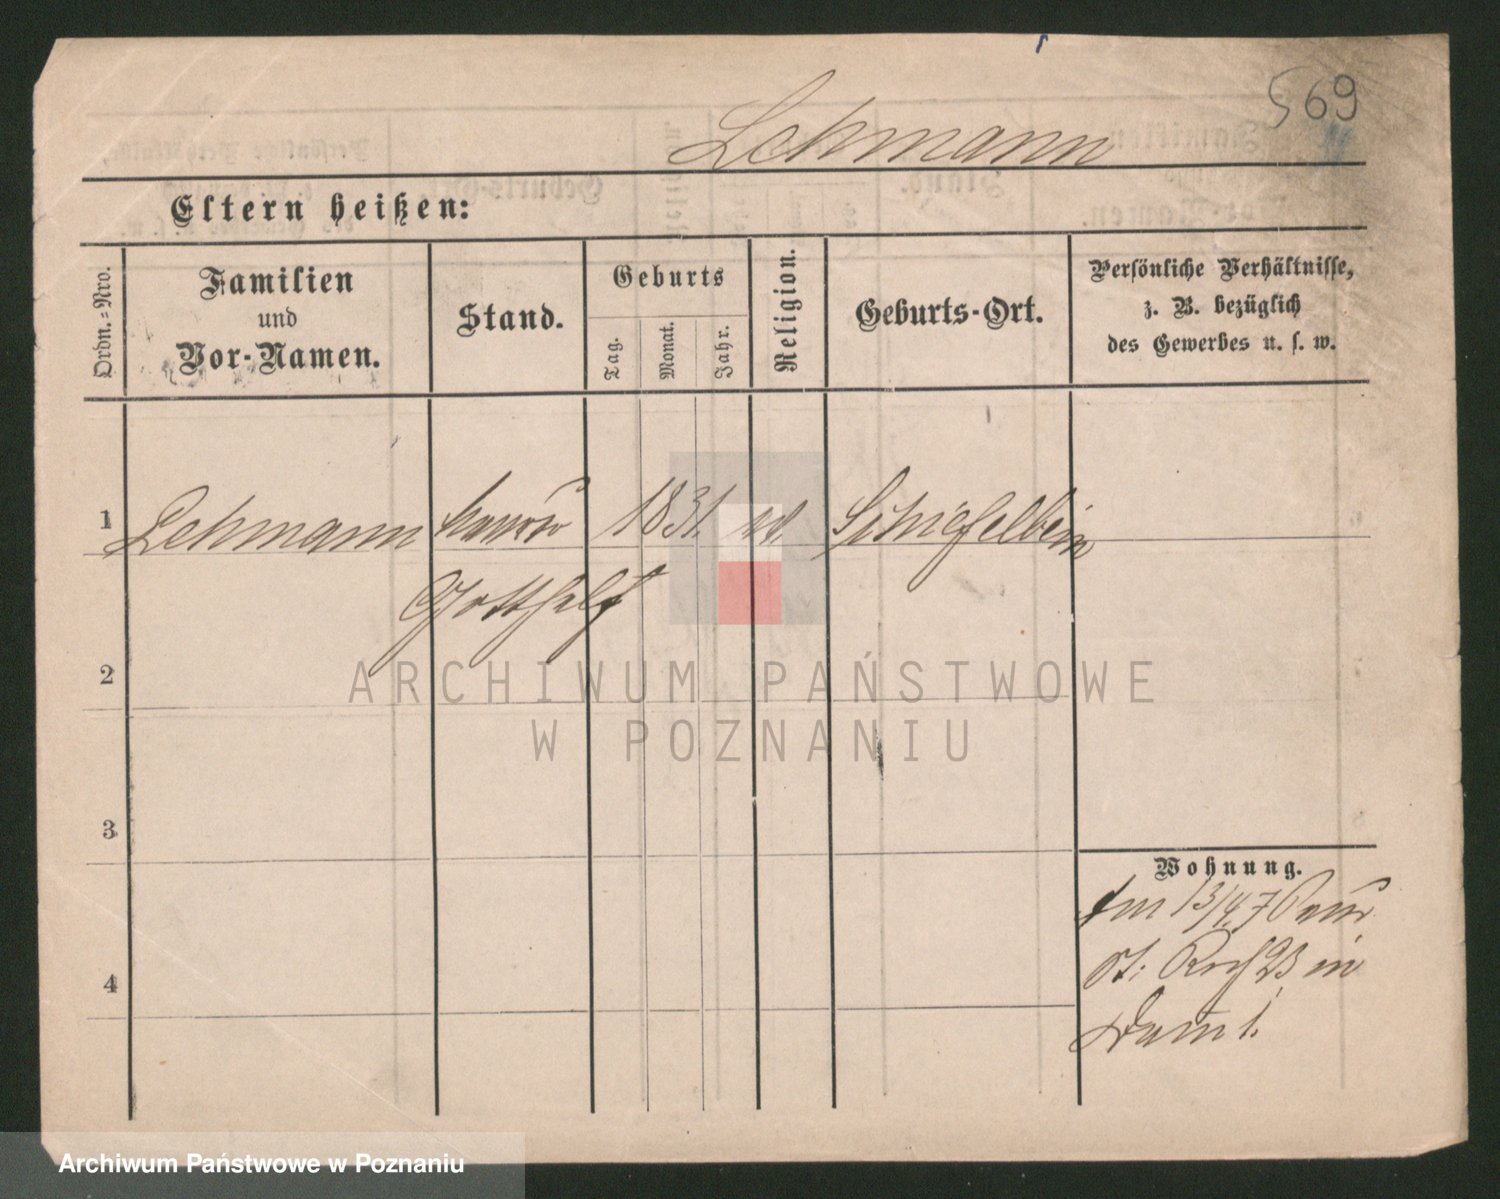 569
Lehmann
Eltern heißen:
Ordn.-Nro.
Familien
und
Vor-Namen.
Stand.
Geburts
Tag.
Monat.
Jahr.
Religion.
Geburts-Ort.
Persönliche Verhältnisse,
z. B. bezüglich
des Gewerbes u. s. w.
1 Lehmann 1831. Schiefelbein
Gotthelf
2
ARCHIWUM PAŃSTWOWE
W POZNANIU
3
Wohnung.
13/4. 7
4
St: 23 in
Archiwum Państwowe w Poznaniu